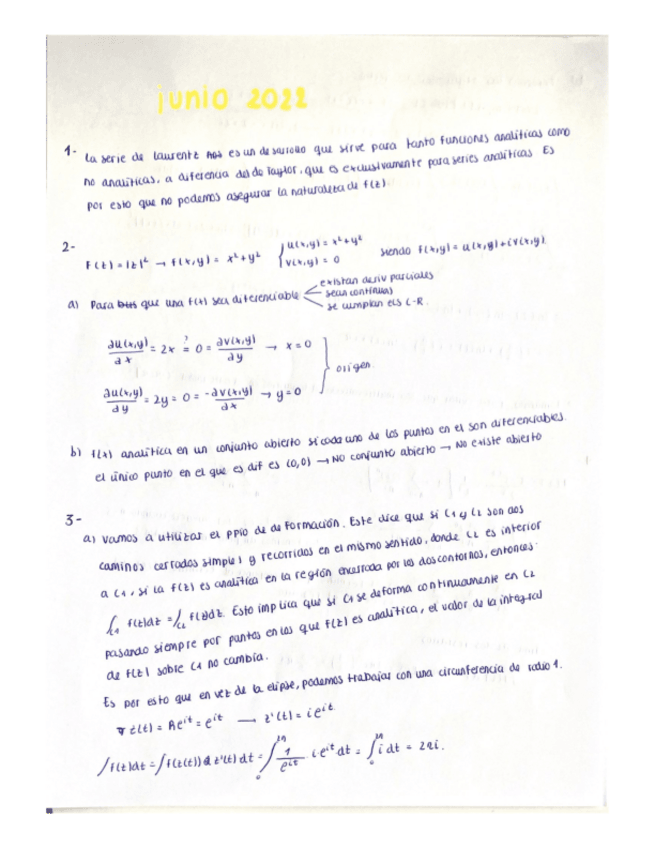 junio 2022
1- La serie de Laurentz nos es un desarrollo que sirve para tanto funciones analíticas como
no analíticas, a diferencia del de Taylor, que es exclusivamente para series analíticas Es
por esto que no podemos asegurar la naturaleza de f(z)
2-
F(z) = |z|² → f(x,y) = x²+y² { u(x,y) = x²+y² v(x,y) = 0 siendo f(x,y) = u(x,y)+iv(x,y).
a) Para que una f(z) sea diferenciable existan deriv parciales
sean continuas
se cumplan els C-R.
∂u(x,y)/∂x = 2x =? 0 = ∂v(x,y)/∂y → x=0
∂u(x,y)/∂y = 2y = 0 = -∂v(x,y)/∂x → y=0 } origen.
b) f(z) analítica en un conjunto abierto si cada uno de los puntos en el son diferenciables.
el único punto en el que es dif es (0,0) → NO conjunto abierto → No existe abierto
3-
a) Vamos a utilizar el ppio de deformación. Este dice que si C1 y C2 son dos
caminos cerrados simples y recorridos en el mismo sentido, donde C2 es interior
a C1, si la f(z) es analítica en la región encerrada por los dos contornos, entonces.
∫C1 f(z)dz = ∫C2 f(z)dz. Esto implica que si C1 se deforma continuamente en C2
pasando siempre por puntos en los que f(z) es analítica, el valor de la integral
de f(z) sobre C1 no cambia.
Es por esto que en vez de la elipse, podemos trabajar con una circunferencia de radio 1.
z(t) = Re^it = e^it → z'(t) = ie^it
∫f(z)dz = ∫f(z(t)) z'(t) dt = ∫₀^2π 1/e^it · i·e^it dt = ∫₀^2π i dt = 2πi.